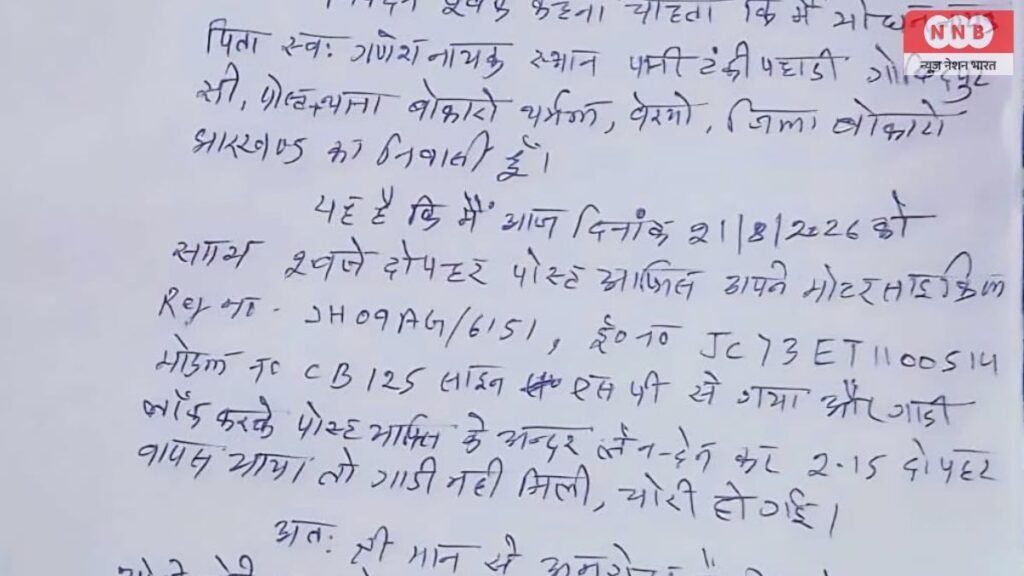 NNB
न्यूज़ नेशन भारत
कहना चाहता कि मैं
पिता स्व: गणेश नायक स्थान पानी टंकी पहाडी गोविन्दपुर
सी, पोस्ट+थाना बोकारो थर्मल, बेरमो, जिला बोकारो
झारखण्ड का निवासी हूँ।
यह है कि मैं आज दिनांक 21/8/2026 को
समय 2 बजे दोपहर पोस्ट आफिस अपने मोटरसाइकिल
Reg no - JH09AG/6151, ई० न० JC73ET1100514
मोडल न० CB125 साईन एस पी से गया और गाडी
लॉक करके पोस्ट आफिस के अन्दर लेन-देन कर 2.15 दोपहर
वापस आया तो गाडी नही मिली, चोरी हो गई।
अत: श्री मान से